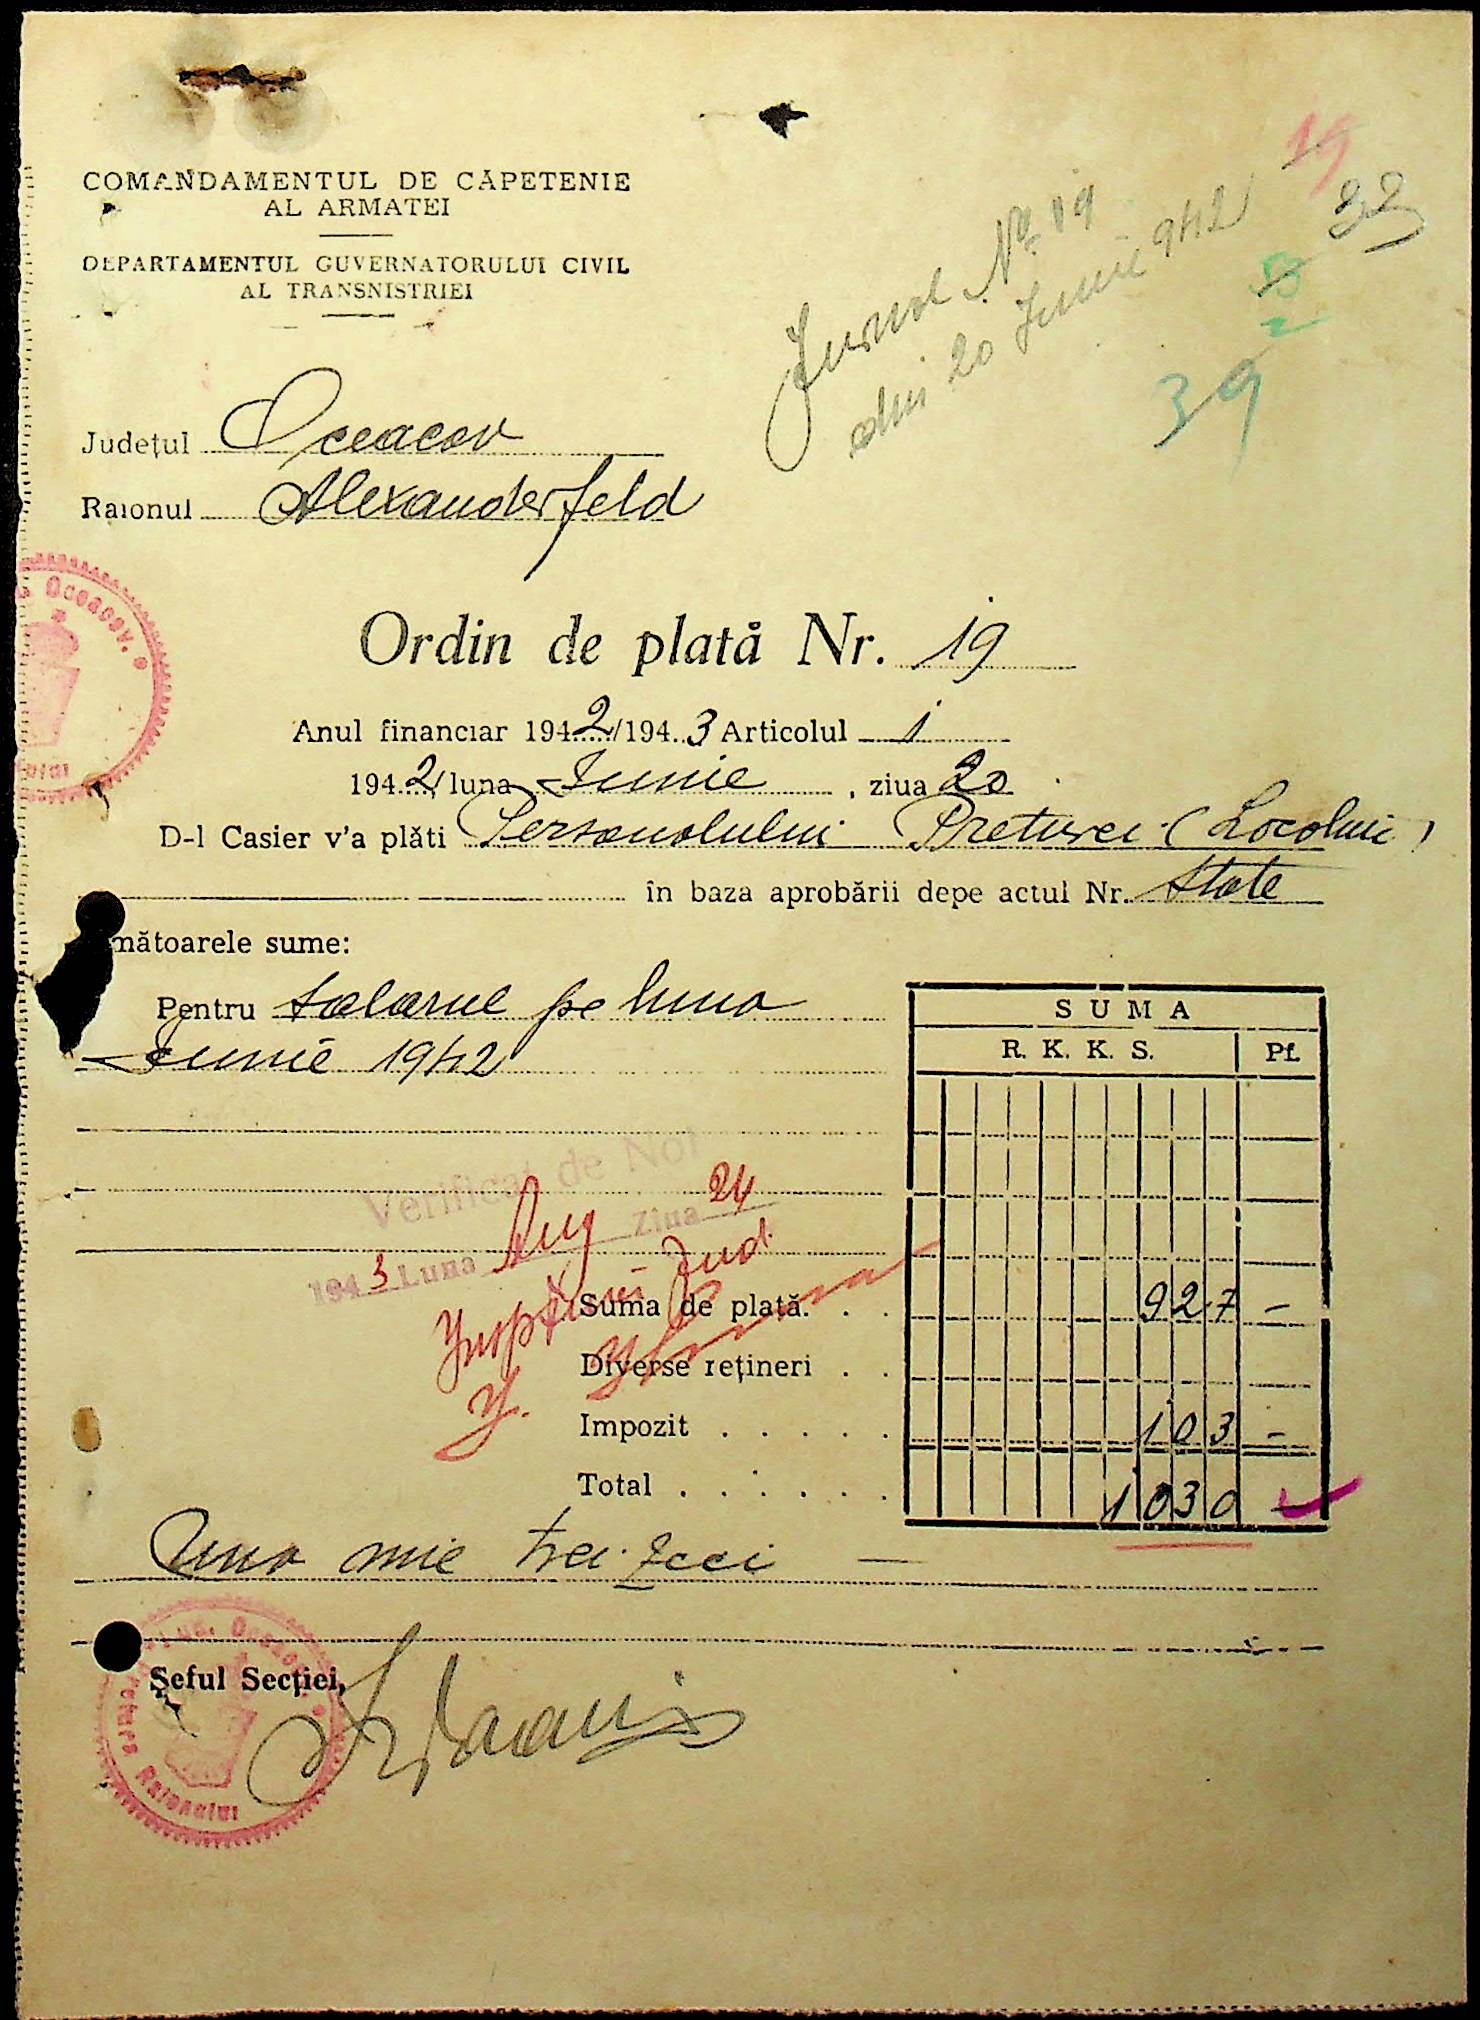 COMANDAMENTUL DE CĂPETENIE
AL ARMATEI
DEPARTAMENTUL GUVERNATORULUI CIVIL
AL TRANSNISTRIEI
19
32
Jurnal No 19
din 20 Iunie 942
39
Județul Oceacov
Raionul Alexanderfeld
Oceacov.
Ordin de plată Nr. 19
Anul financiar 1942/1943 Articolul 1
1942/luna Iunie, ziua 20
D-l Casier v'a plăti Personalului Preturei (Localnic)
în baza aprobării depe actul Nr. State
mătoarele sume:
Pentru salariul pe luna
Iunie 1942
SUMA
R. K. K. S. Pf.
Verificat de Noi
1943 Luna Aug Ziua 24
Jud.
Suma de plată. . . 927 -
Diverse rețineri . .
Impozit . . . . . 103 -
Total . . . . . . 1030 -
Una mie trei zeci —
Șeful Secției,
Pretura Raionului